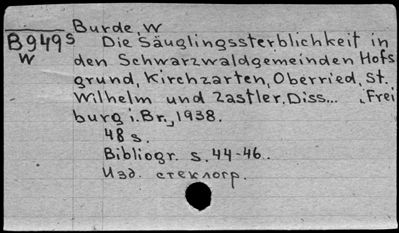 Burde, W
B949s
W
Die Säuglingssterblichkeit in
den Schwarzwaldgemeinden Hofs
grund, Kirchzarten, Oberried, St.
Wilhelm und Zastler, Diss... , Frei
burg i. Br., 1938.
48 s.
Bibliogr. s. 44-46.
Изд. стеклогр.